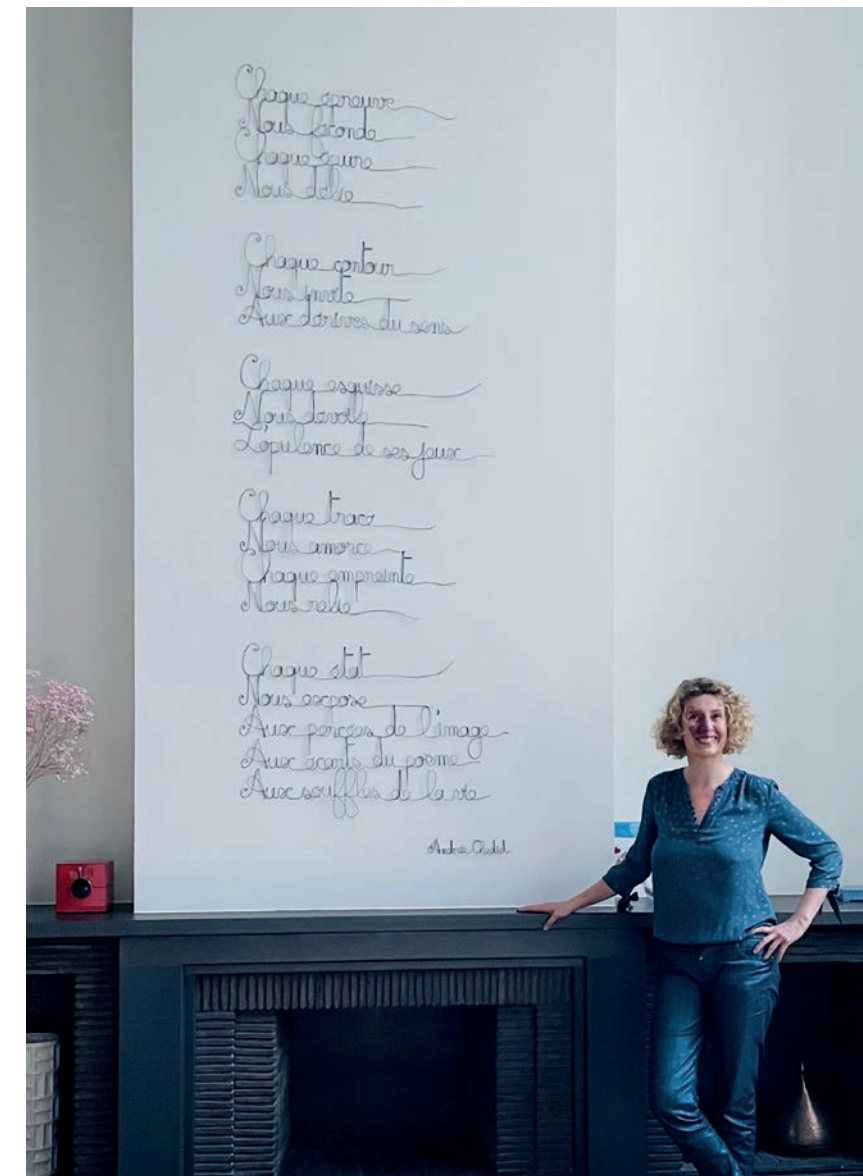 Chaque épreuve
Nous féconde
Chaque œuvre
Nous délie
Chaque contour
Nous invite
Aux dérives du sens
Chaque esquisse
Nous dévoile
L'opulence de ses jeux
Chaque trace
Nous amorce
Chaque empreinte
Nous relie
Chaque état
Nous expose
Aux percées de l'image
Aux écarts du poème
Aux souffles de la vie
Andrée Chedid